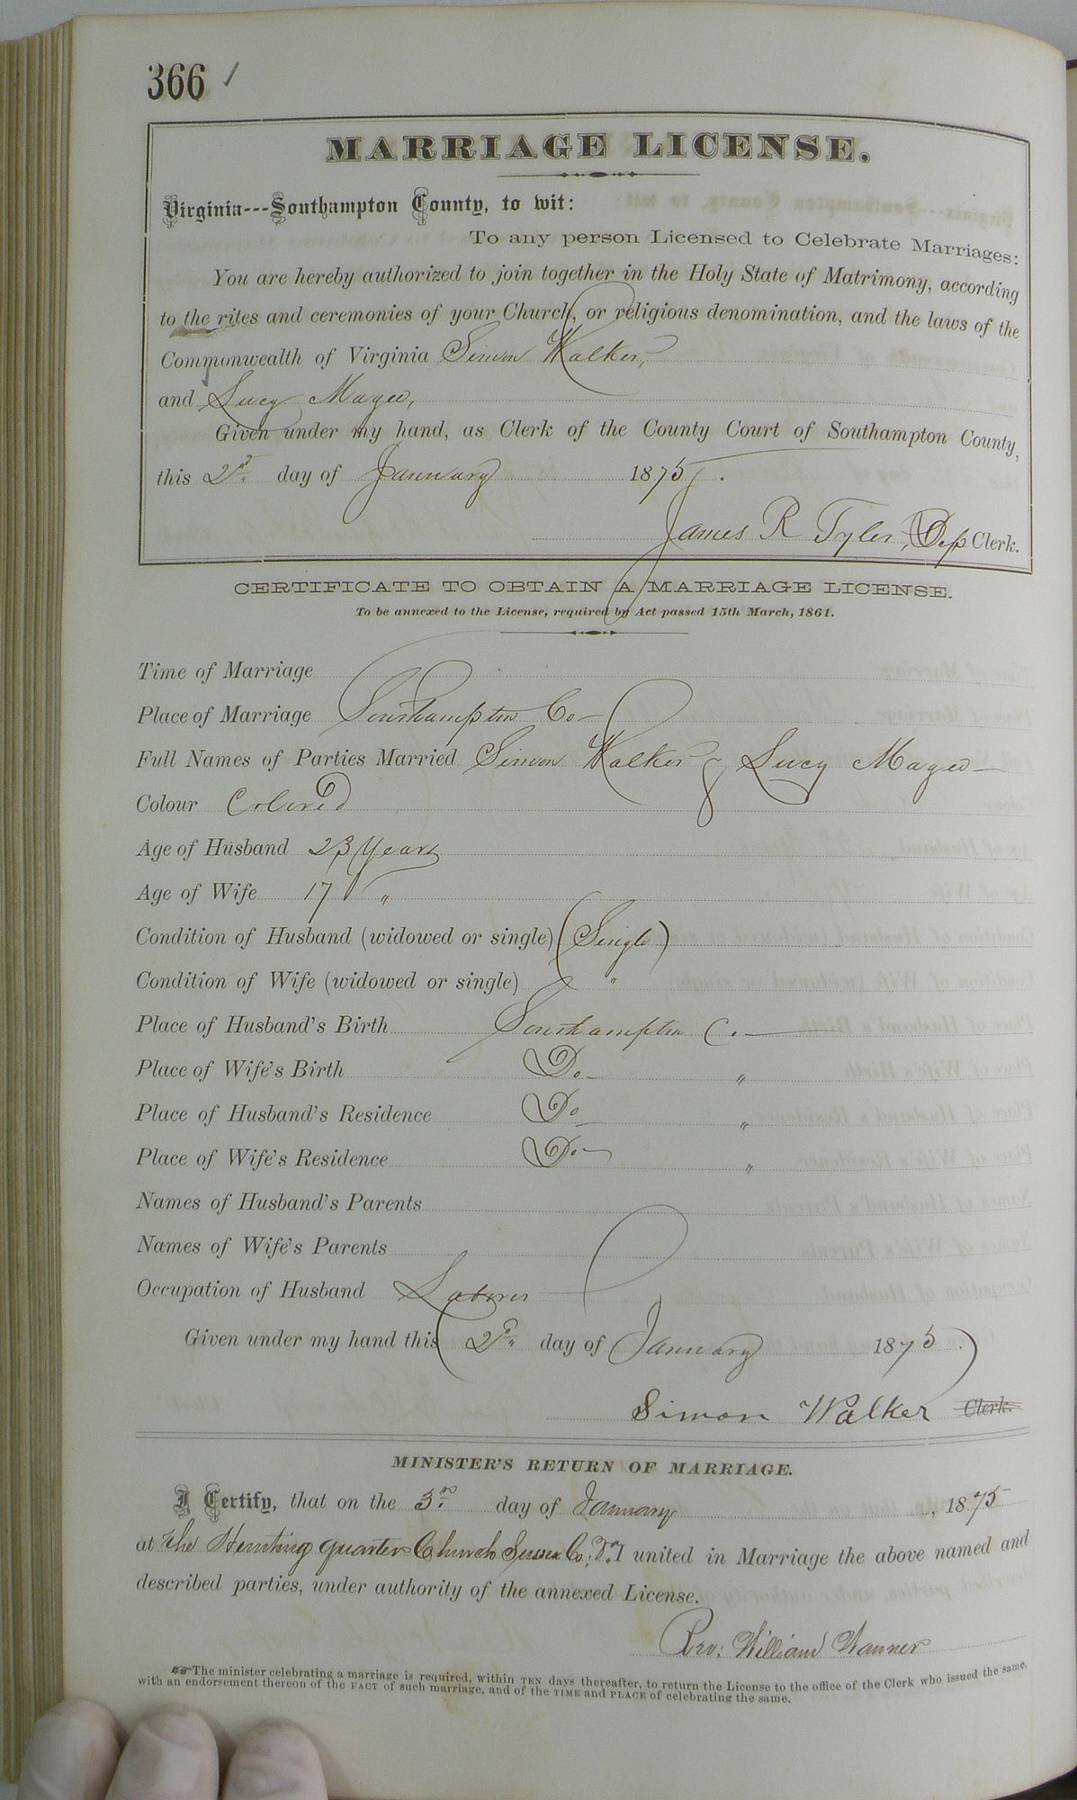 366
MARRIAGE LICENSE.
Virginia---Southampton County, to wit:
To any person Licensed to Celebrate Marriages:
You are hereby authorized to join together in the Holy State of Matrimony, according
to the rites and ceremonies of your Church, or religious denomination, and the laws of the
Commonwealth of Virginia Simon Walker,
and Lucy Magee,
Given under my hand, as Clerk of the County Court of Southampton County,
this 2d. day of January 1875.
James R Tyler, Dep Clerk.
CERTIFICATE TO OBTAIN A MARRIAGE LICENSE.
To be annexed to the License, required by Act passed 15th March, 1861.
Time of Marriage
Place of Marriage Southampton Co-
Full Names of Parties Married Simon Walker & Lucy Magee-
Colour Colored
Age of Husband 23 Years
Age of Wife 17 "
Condition of Husband (widowed or single) (Single)
Condition of Wife (widowed or single) "
Place of Husband's Birth Southampton Co.-
Place of Wife's Birth Do- "
Place of Husband's Residence Do- "
Place of Wife's Residence Do- "
Names of Husband's Parents
Names of Wife's Parents
Occupation of Husband Laborer
Given under my hand this (2d. day of January 1875.)
Simon Walker Clerk.
MINISTER'S RETURN OF MARRIAGE.
I Certify, that on the 3rd. day of January, 1875
at the Hunting quarter Church Sussex Co; Va I united in Marriage the above named and
described parties, under authority of the annexed License.
Rev: William Wanner
The minister celebrating a marriage is required, within TEN days thereafter, to return the License to the office of the Clerk who issued the same,
with an endorsement thereon of the FACT of such marriage, and of the TIME and PLACE of celebrating the same.